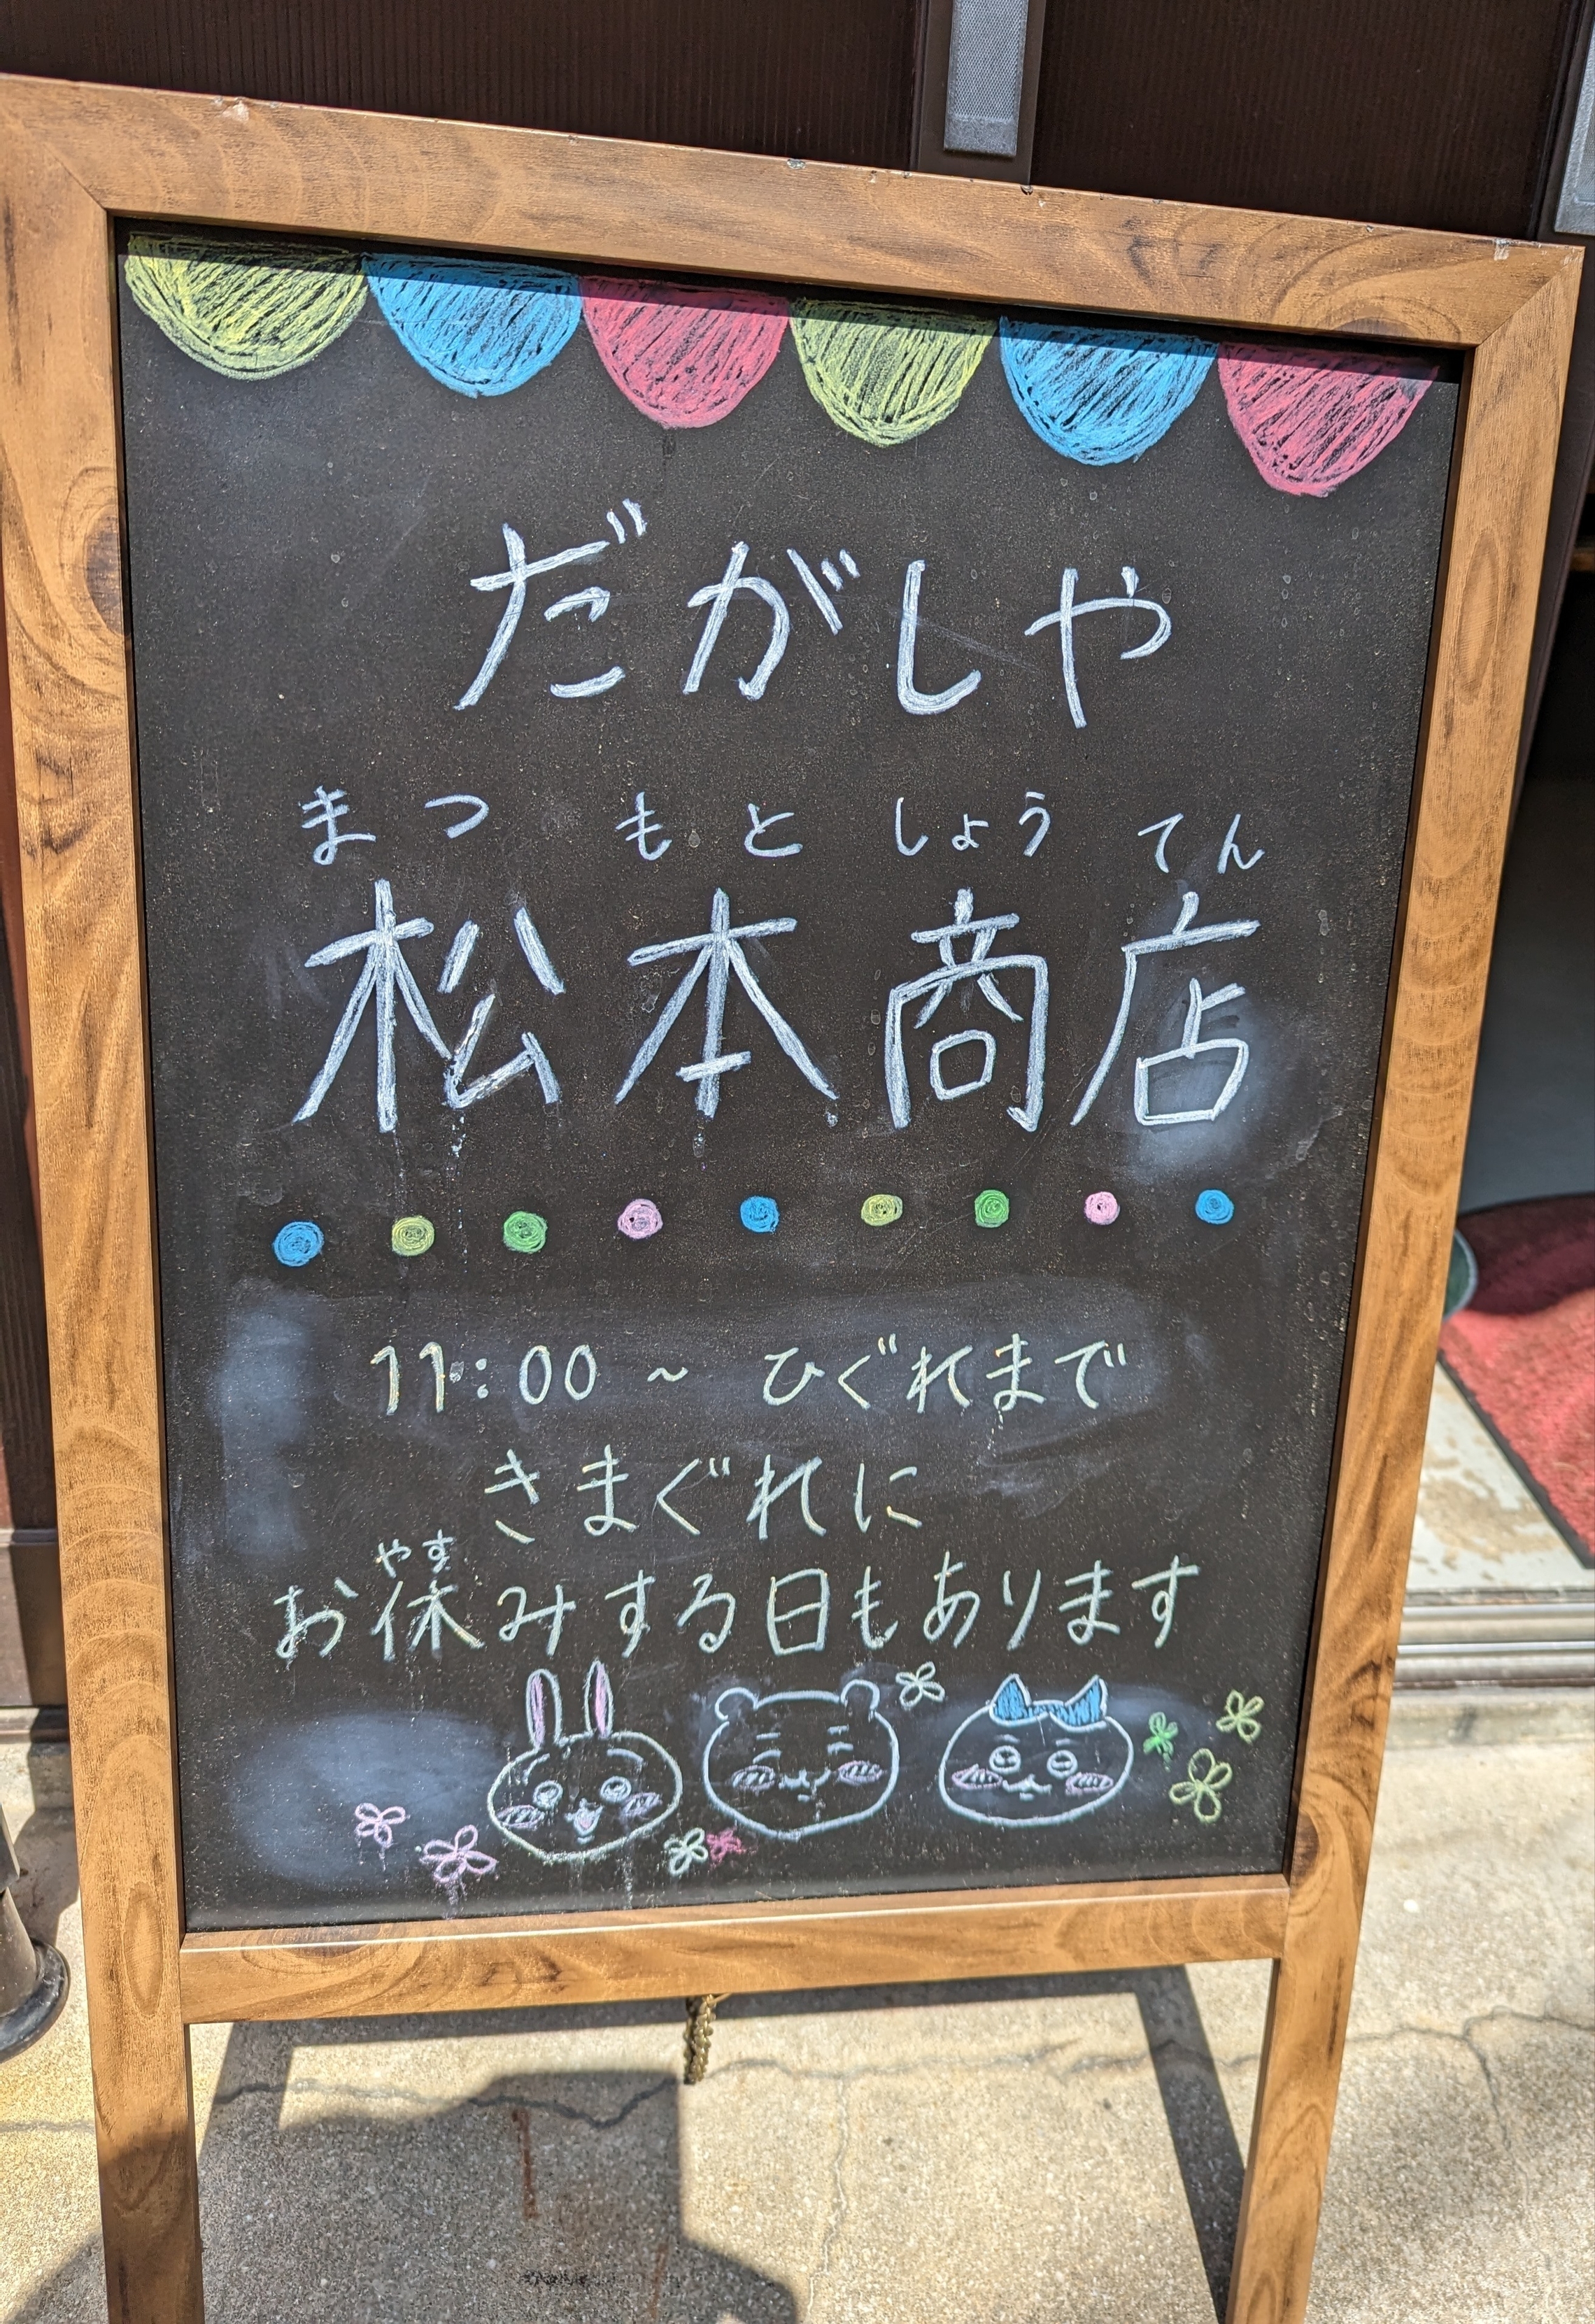 だがしや
まつ もと しょう てん
松本商店
11:00 ~ ひぐれまで
きまぐれに
やす
お休みする日もあります